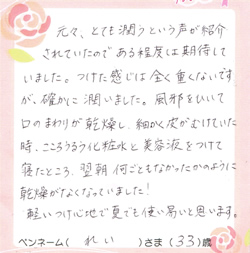 元々、とても潤うという声が紹介
されていたので ある程度は期待して
いました。つけた感じは全く重くないです
が、確かに潤いました。風邪をひいて
口のまわりが乾燥し、細かく皮がむけていた
時、こころうるう化粧水と美容液をつけて
寝たところ、翌朝 何ごともなかったかのように
乾燥がなくなっていました!
軽いつけ心地で夏でも使い易いと思います。
ペンネーム( れい )さま (33)歳